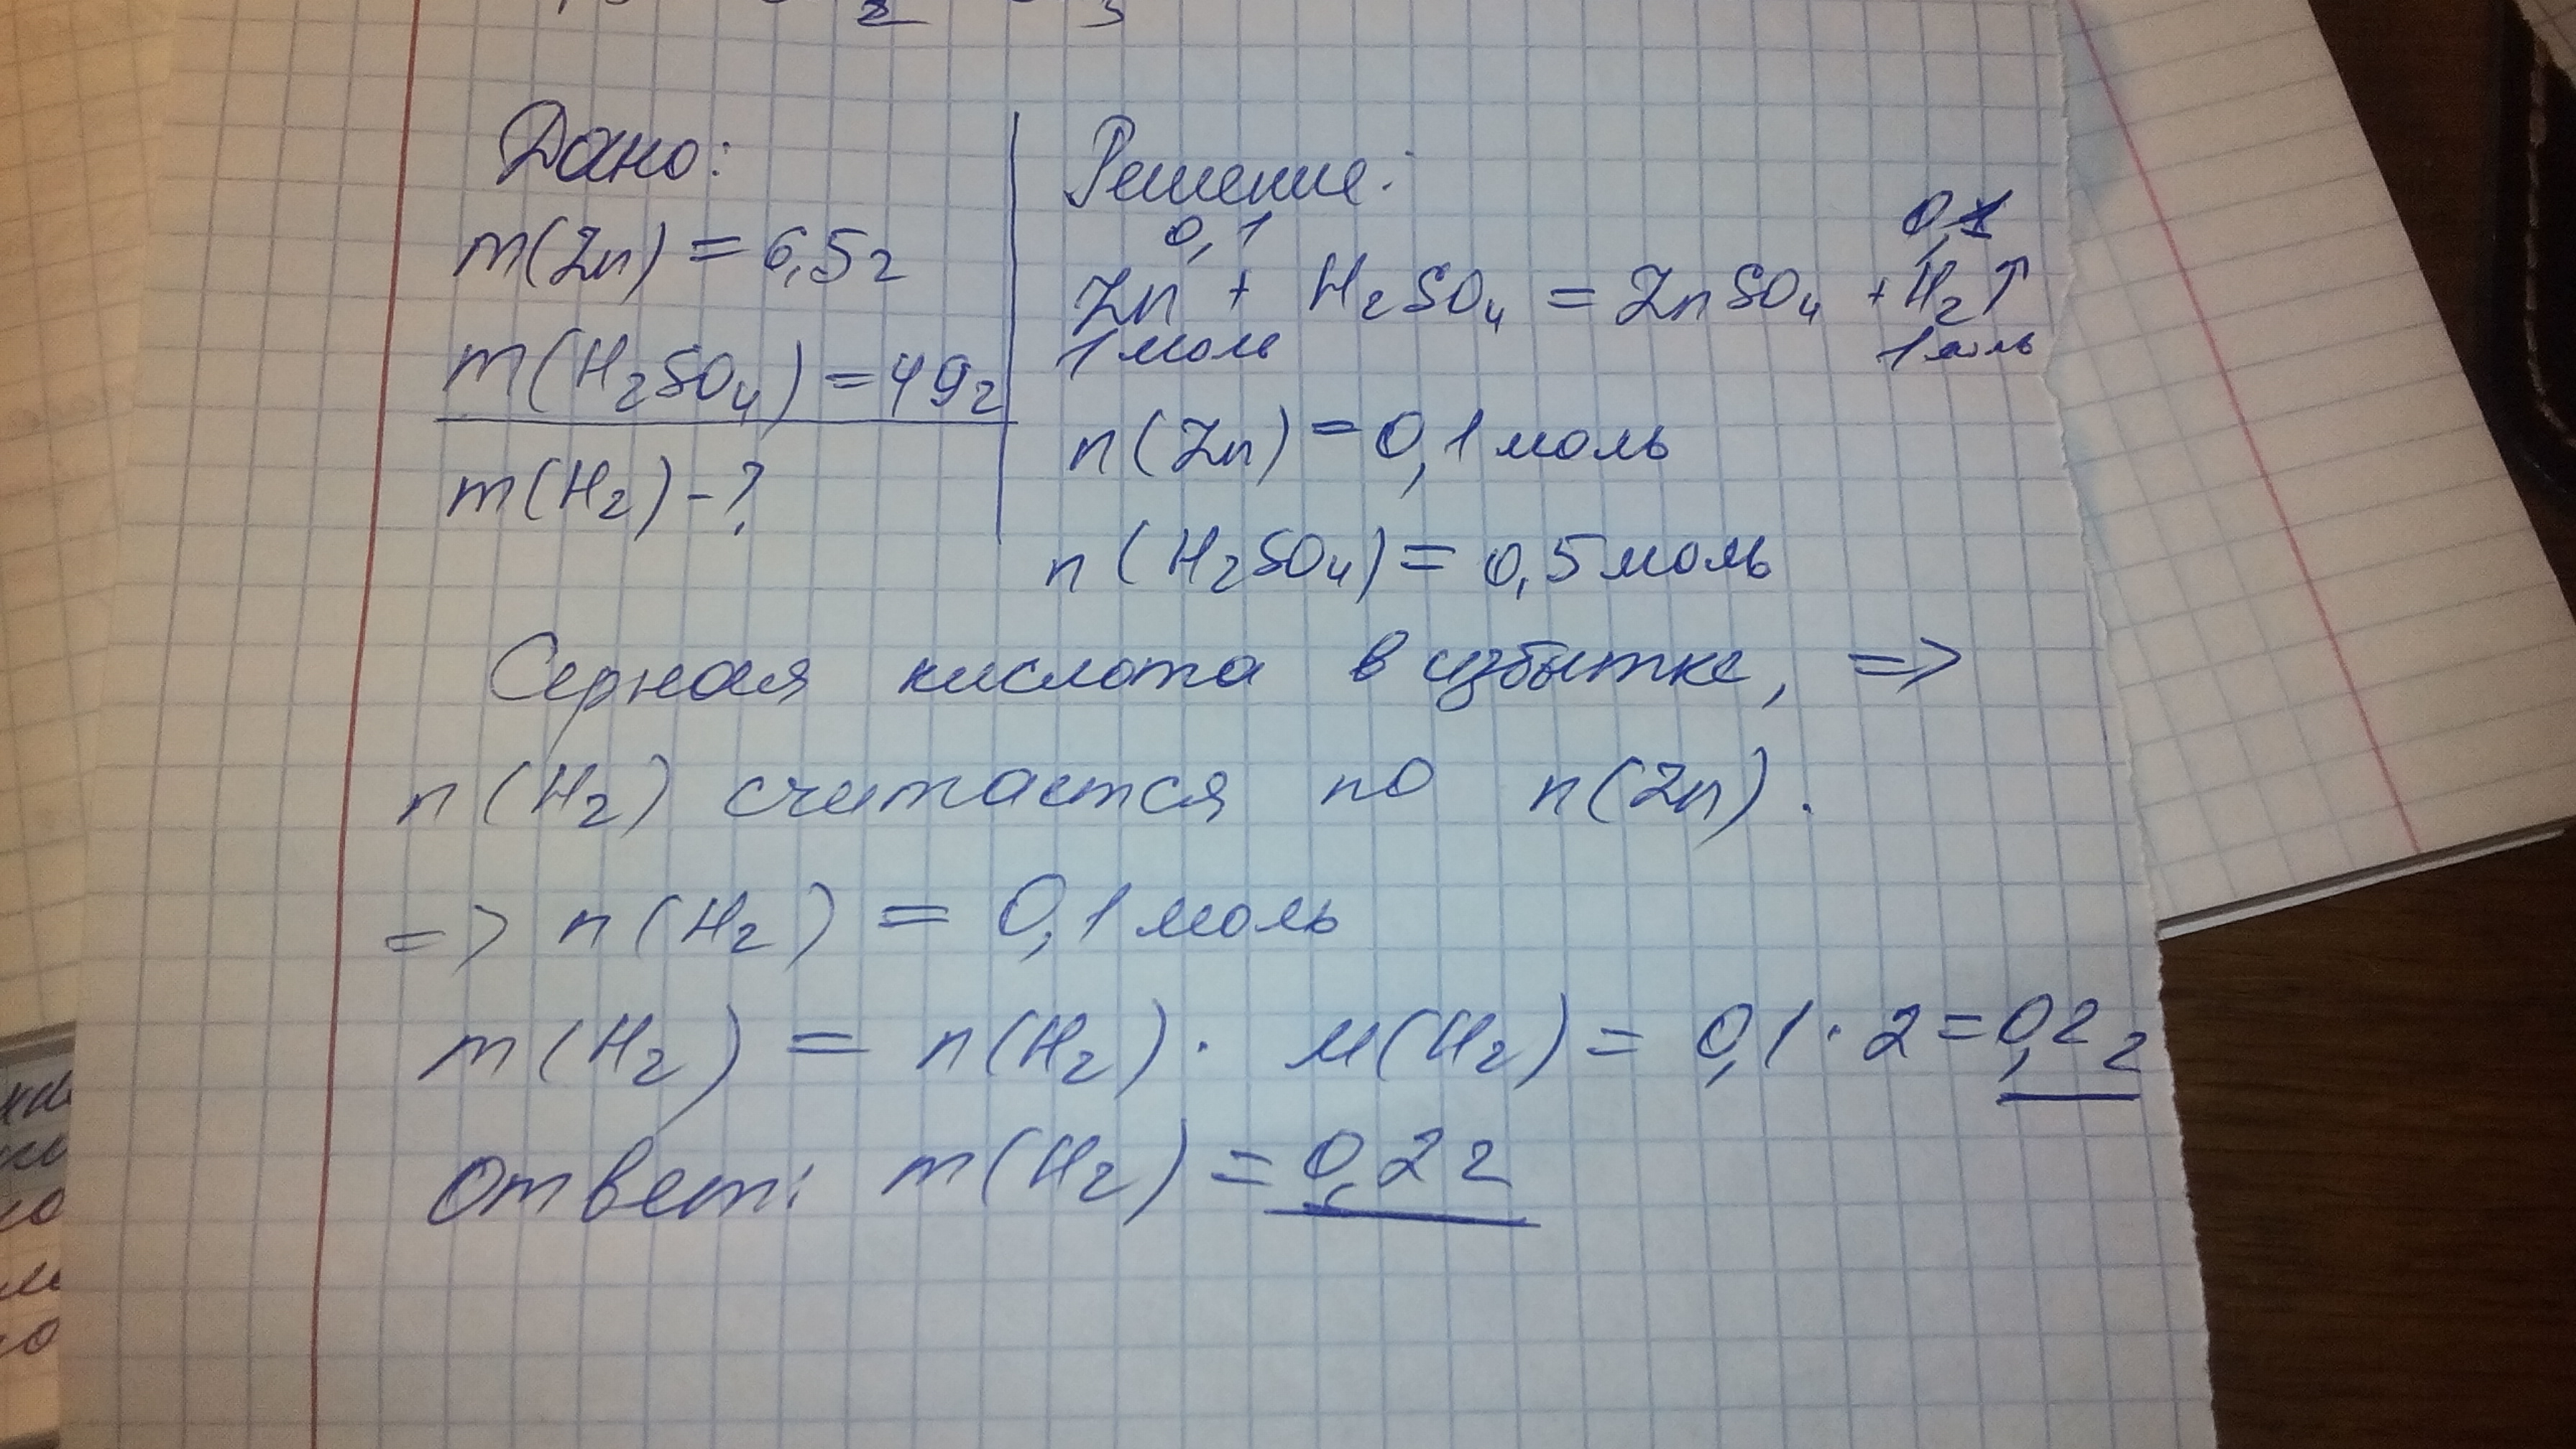 Дано:
m(Zn) = 6,5г
m(H₂SO₄) = 49г
m(H₂) - ?
Решение:
0,1 0,1
Zn + H₂SO₄ = ZnSO₄ + H₂↑
1моль 1моль
n(Zn) = 0,1моль
n(H₂SO₄) = 0,5моль
Серная кислота в избытке, =>
n(H₂) считается по n(Zn).
=> n(H₂) = 0,1моль
m(H₂) = n(H₂) · M(H₂) = 0,1 · 2 = 0,2г
Ответ: m(H₂) = 0,2г